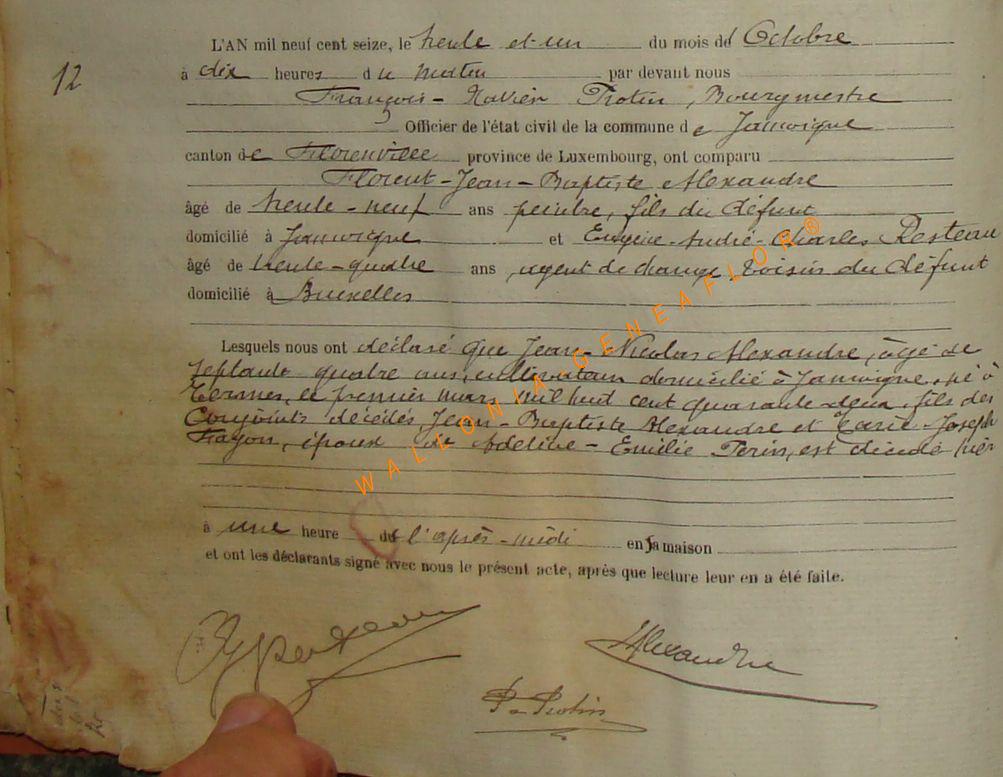 12
L'AN mil neuf cent seize, le trente et un du mois de Octobre
à dix heures du matin par devant nous
François-Xavier Protin, Bourgmestre
Officier de l'état civil de la commune de Jamoigne
canton de Florenville province de Luxembourg, ont comparu
Florent-Jean-Baptiste Alexandre
âgé de trente-neuf ans peintre, fils du défunt
domicilié à Jamoigne et Eugène-André-Charles Pesteau
âgé de trente-quatre ans, agent de change, voisin du défunt
domicilié à Bruxelles
Lesquels nous ont déclaré que Jean-Nicolas Alexandre, âgé de
septante quatre ans, cultivateur domicilié à Jamoigne, né à
Termes, le premier mars mil huit cent quarante-deux, fils des
Conjoints décédés Jean-Baptiste Alexandre et Marie-Joseph
époux de Adeline-Emilie est décédé hier
à une heure de l'après-midi en sa maison
et ont les déclarants signé avec nous le présent acte, après que lecture leur en a été faite.
Alexandre
Protin
WALLONIA-GENEAFLOR®